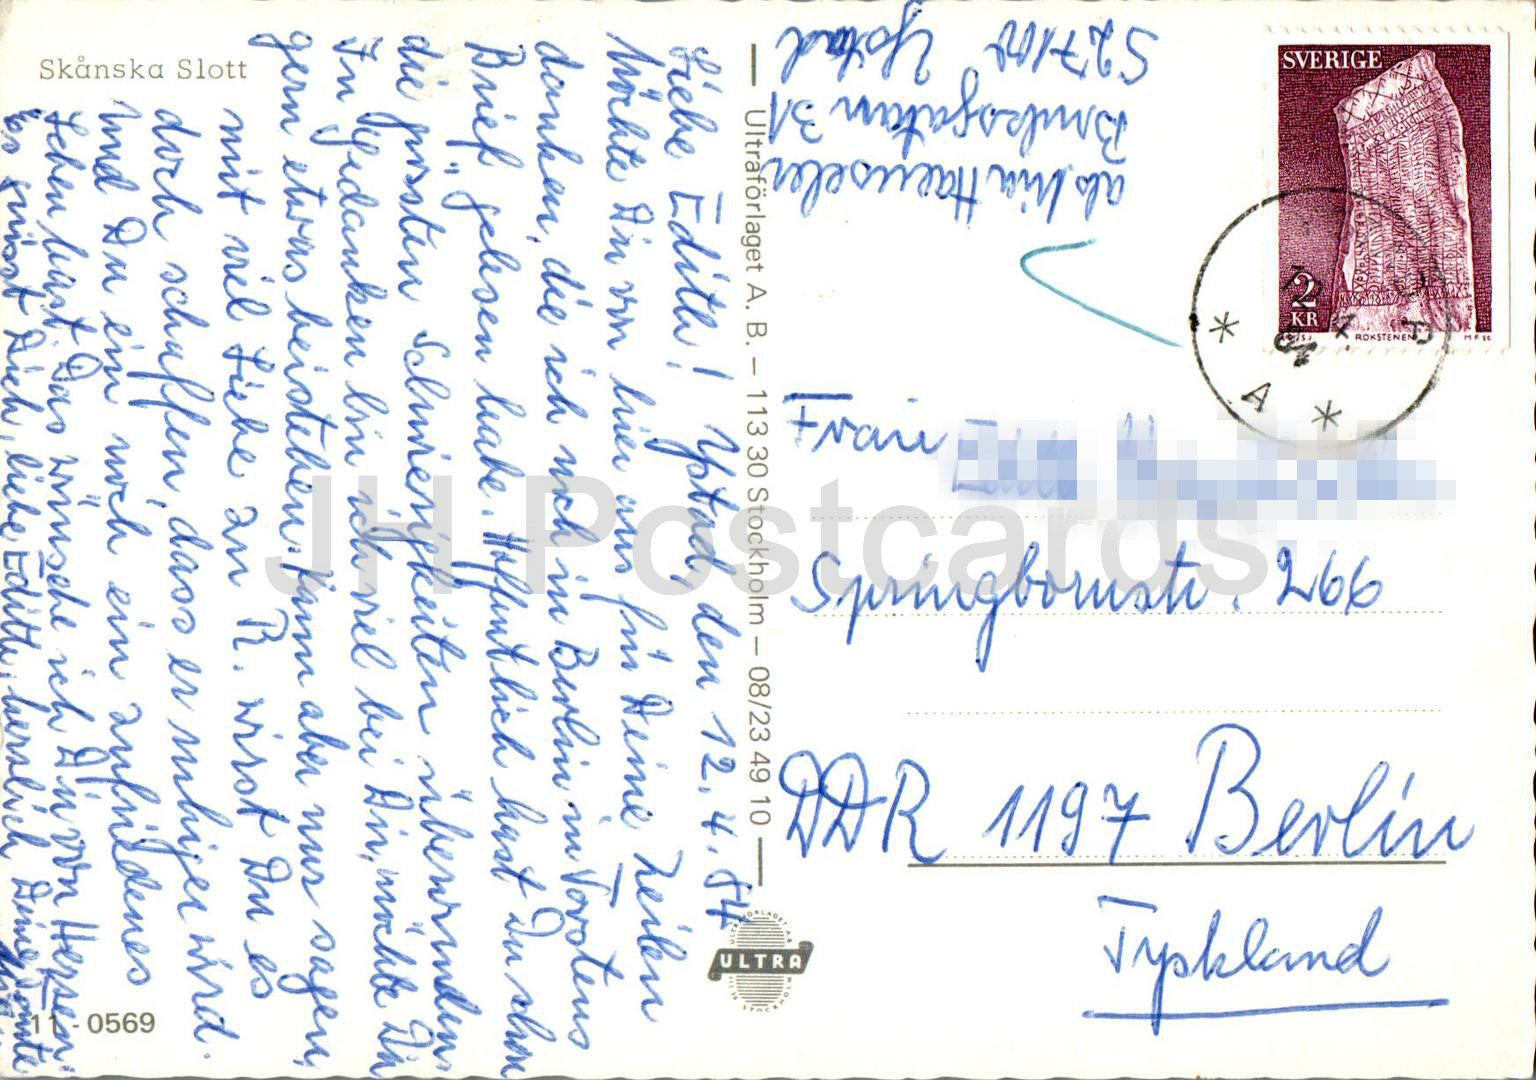 Skånska Slott
Ystad, den 12.4.84
Liebe Edith!
Möchte Dir von hier aus für Deine Zeilen
danken, die ich noch in Berlin in Torstens
Brief gelesen habe. Hoffentlich hast Du schon
die grössten Schwierigkeiten überwunden.
In Gedanken bin ich viel bei Dir, möchte Dir
gern etwas beistehen, kann aber nur sagen,
mit viel Liebe zu R. wirst Du es
doch schaffen, dass er ruhiger wird.
und Du ein noch ein zufriedenes
Leben hast. Das wünsche ich Dir von Herzen!
Es grüsst Dich, liebe Edith, herzlich Deine
11 - 0569
Ultraförlaget A. B. – 113 30 Stockholm – 08/23 49 10
ULTRAFÖRLAGET AB
ULTRA
STOCKHOLM
Haeuseler
31
S 27100 Ystad
SVERIGE
2
KR
RÖKSTENEN
* A *
Frau
Springbornstr. 266
DDR 1197 Berlin
Tyskland
JH Postcards